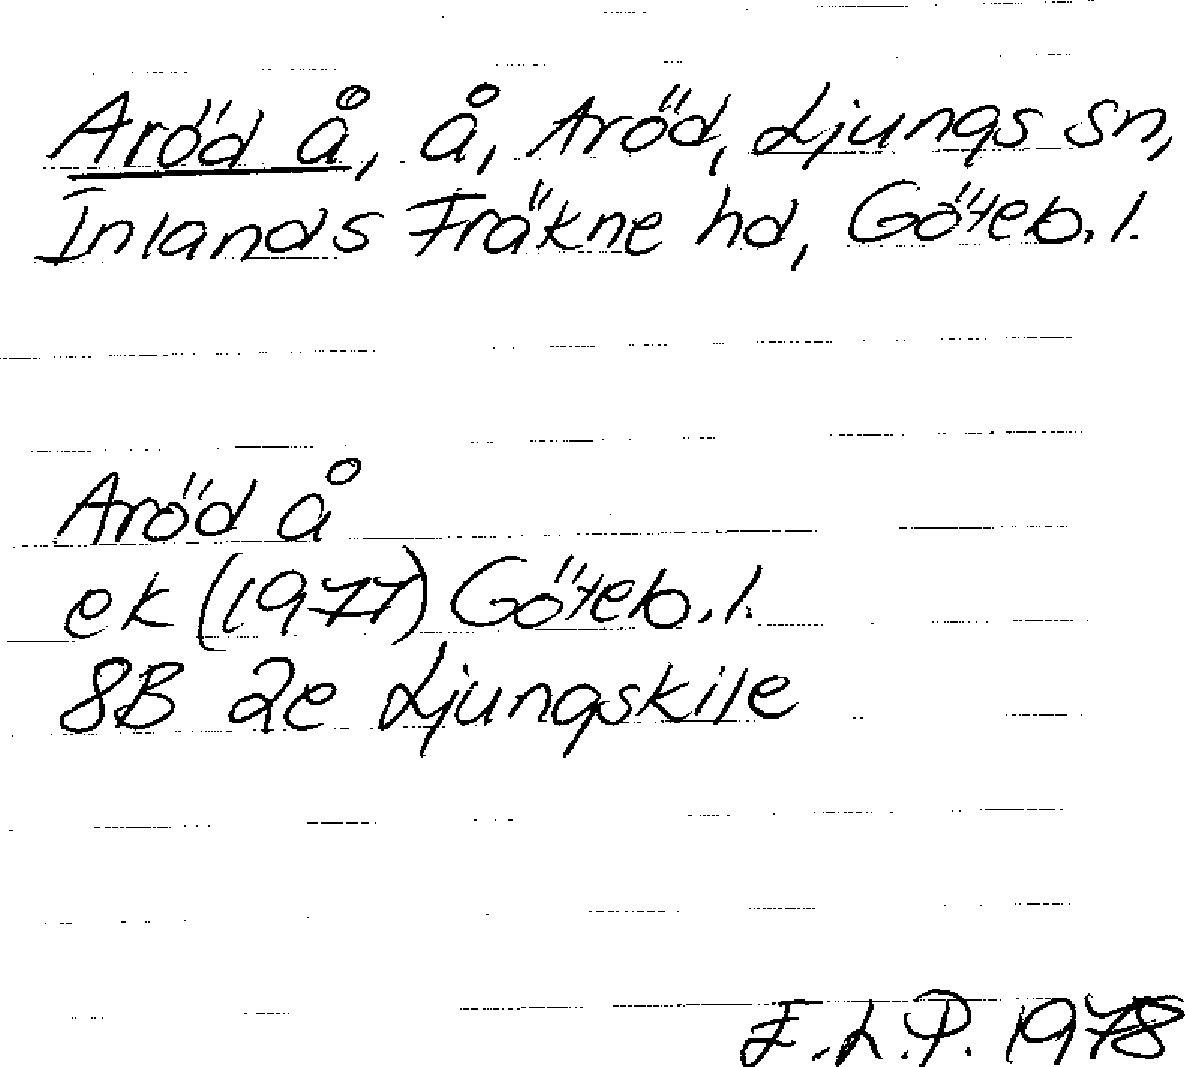 Aröd å, å, Aröd, Ljungs sn,
Inlands Fräkne hd, Göteb. l.
Aröd å
ek (1977) Göteb. l.
8B 2e Ljungskile
E.L.P. 1978